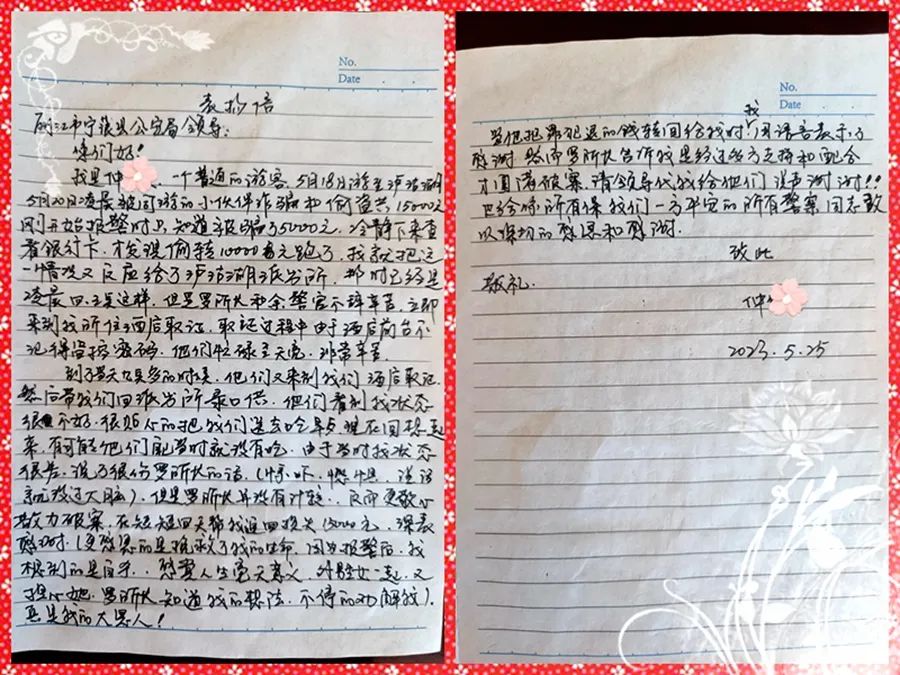 No.
Date
表扬信
丽江市宁蒗县公安局领导:
您们好!
我是仲 一个普通的游客,5月18日游至泸沽湖
5月20日凌晨被同游的小伙伴诈骗和偷盗共15000元
刚开始报警时只知道被骗了5000元,冷静下来查
看银行卡,才发现偷转10000多元跑了,我就把这
一情况又反应给了泸沽湖派出所,那时已经是
凌晨四、五点这样,但是罗所长和余警官不辞辛苦,立即
来到我所住酒店取证,取证过程中由于酒店前台不
记得监控密码,他们忙碌至天亮,非常辛苦。
到了早九点多的时候,他们又来到我们酒店取证,
然后带我们回派出所录口供,他们看到我状态
很不好,很贴心的把我们送去吃早点,现在回想起
来,有可能他们那当时就没有吃,由于当时我状态
很差,说了很伤罗所长的话,(惊吓、懊恼、说话
就没过大脑),但是罗所长并没有计较,反而更敬心
敬力破案,在短短四天帮我追回损失15000元,深表
感谢,(更感恩的是挽救了我的生命,因为报警后,我
想到的是自杀,感觉人生毫无意义,外和女一起,又
担心她,罗所长知道我的想法,不停的劝解我),
真是我的大恩人!
No.
Date
我
当他把罪犯退的钱转回给我时,用语言表示了
感谢,然而罗所长告诉我是经过多方支持和配合
才圆满破案,请领导代我给他们说声谢谢!!
也给您所有保我们一方平安的所有警察同志致
以深切的感恩和感谢。
致此
敬礼.
仲
2023.5.25